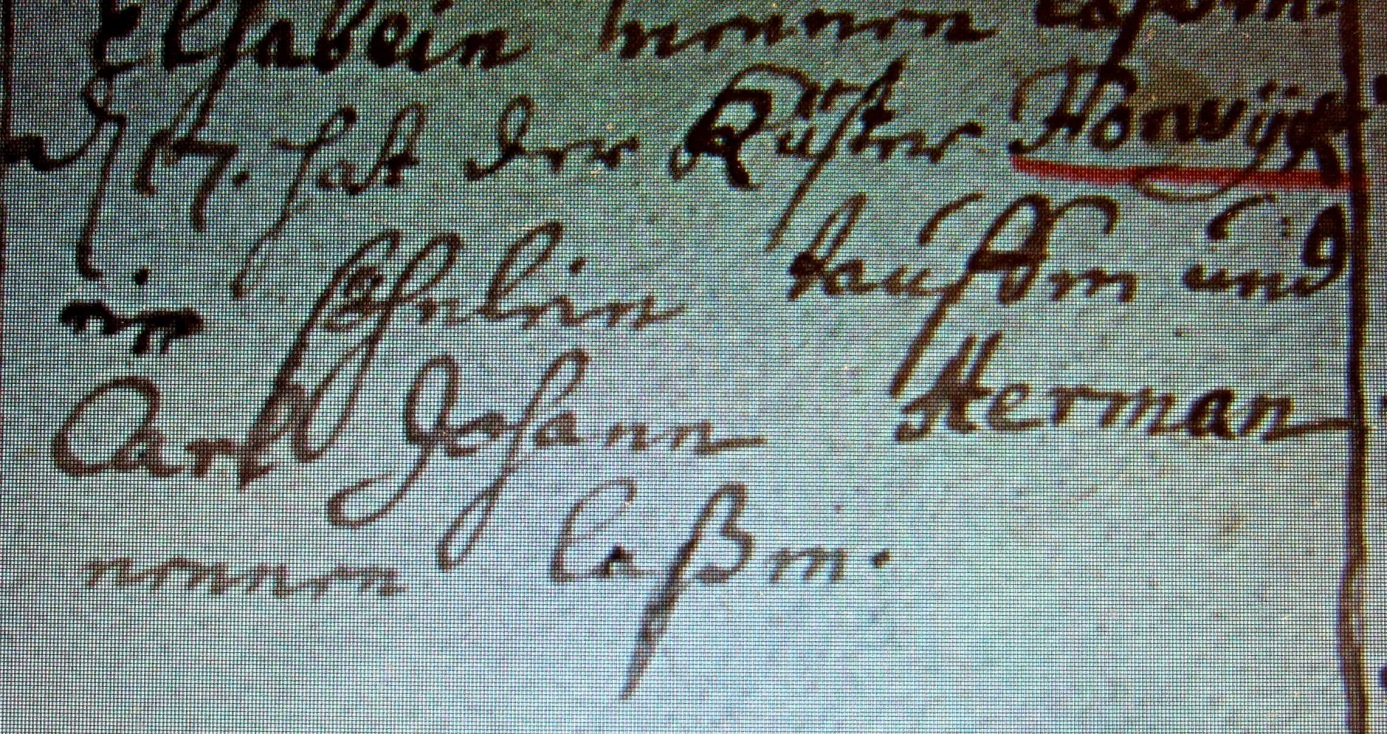 Elsabein nennen laßen.
d 17. hat der Küster Horwÿk
ein söhnlein tauffen und
Carl Johann Herman
nennen laßen.